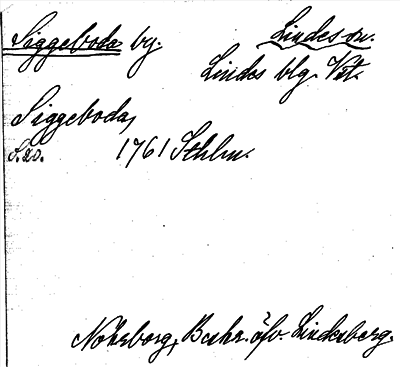 Siggeboda by. Lindes sn.
Lindes blg. Vst.
Siggeboda,
S. 20. 1761 Sthlm.
Nohrborg, Beskr. öfv. Lindesberg.